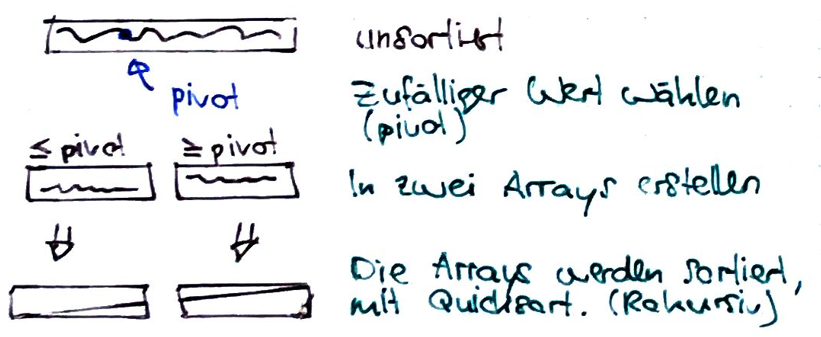 unsortiert
pivot
Zufälliger Wert wählen
(pivot)
≤ pivot ≥ pivot
In zwei Arrays erstellen
Die Arrays werden sortiert,
mit Quicksort. (Rekursiv)